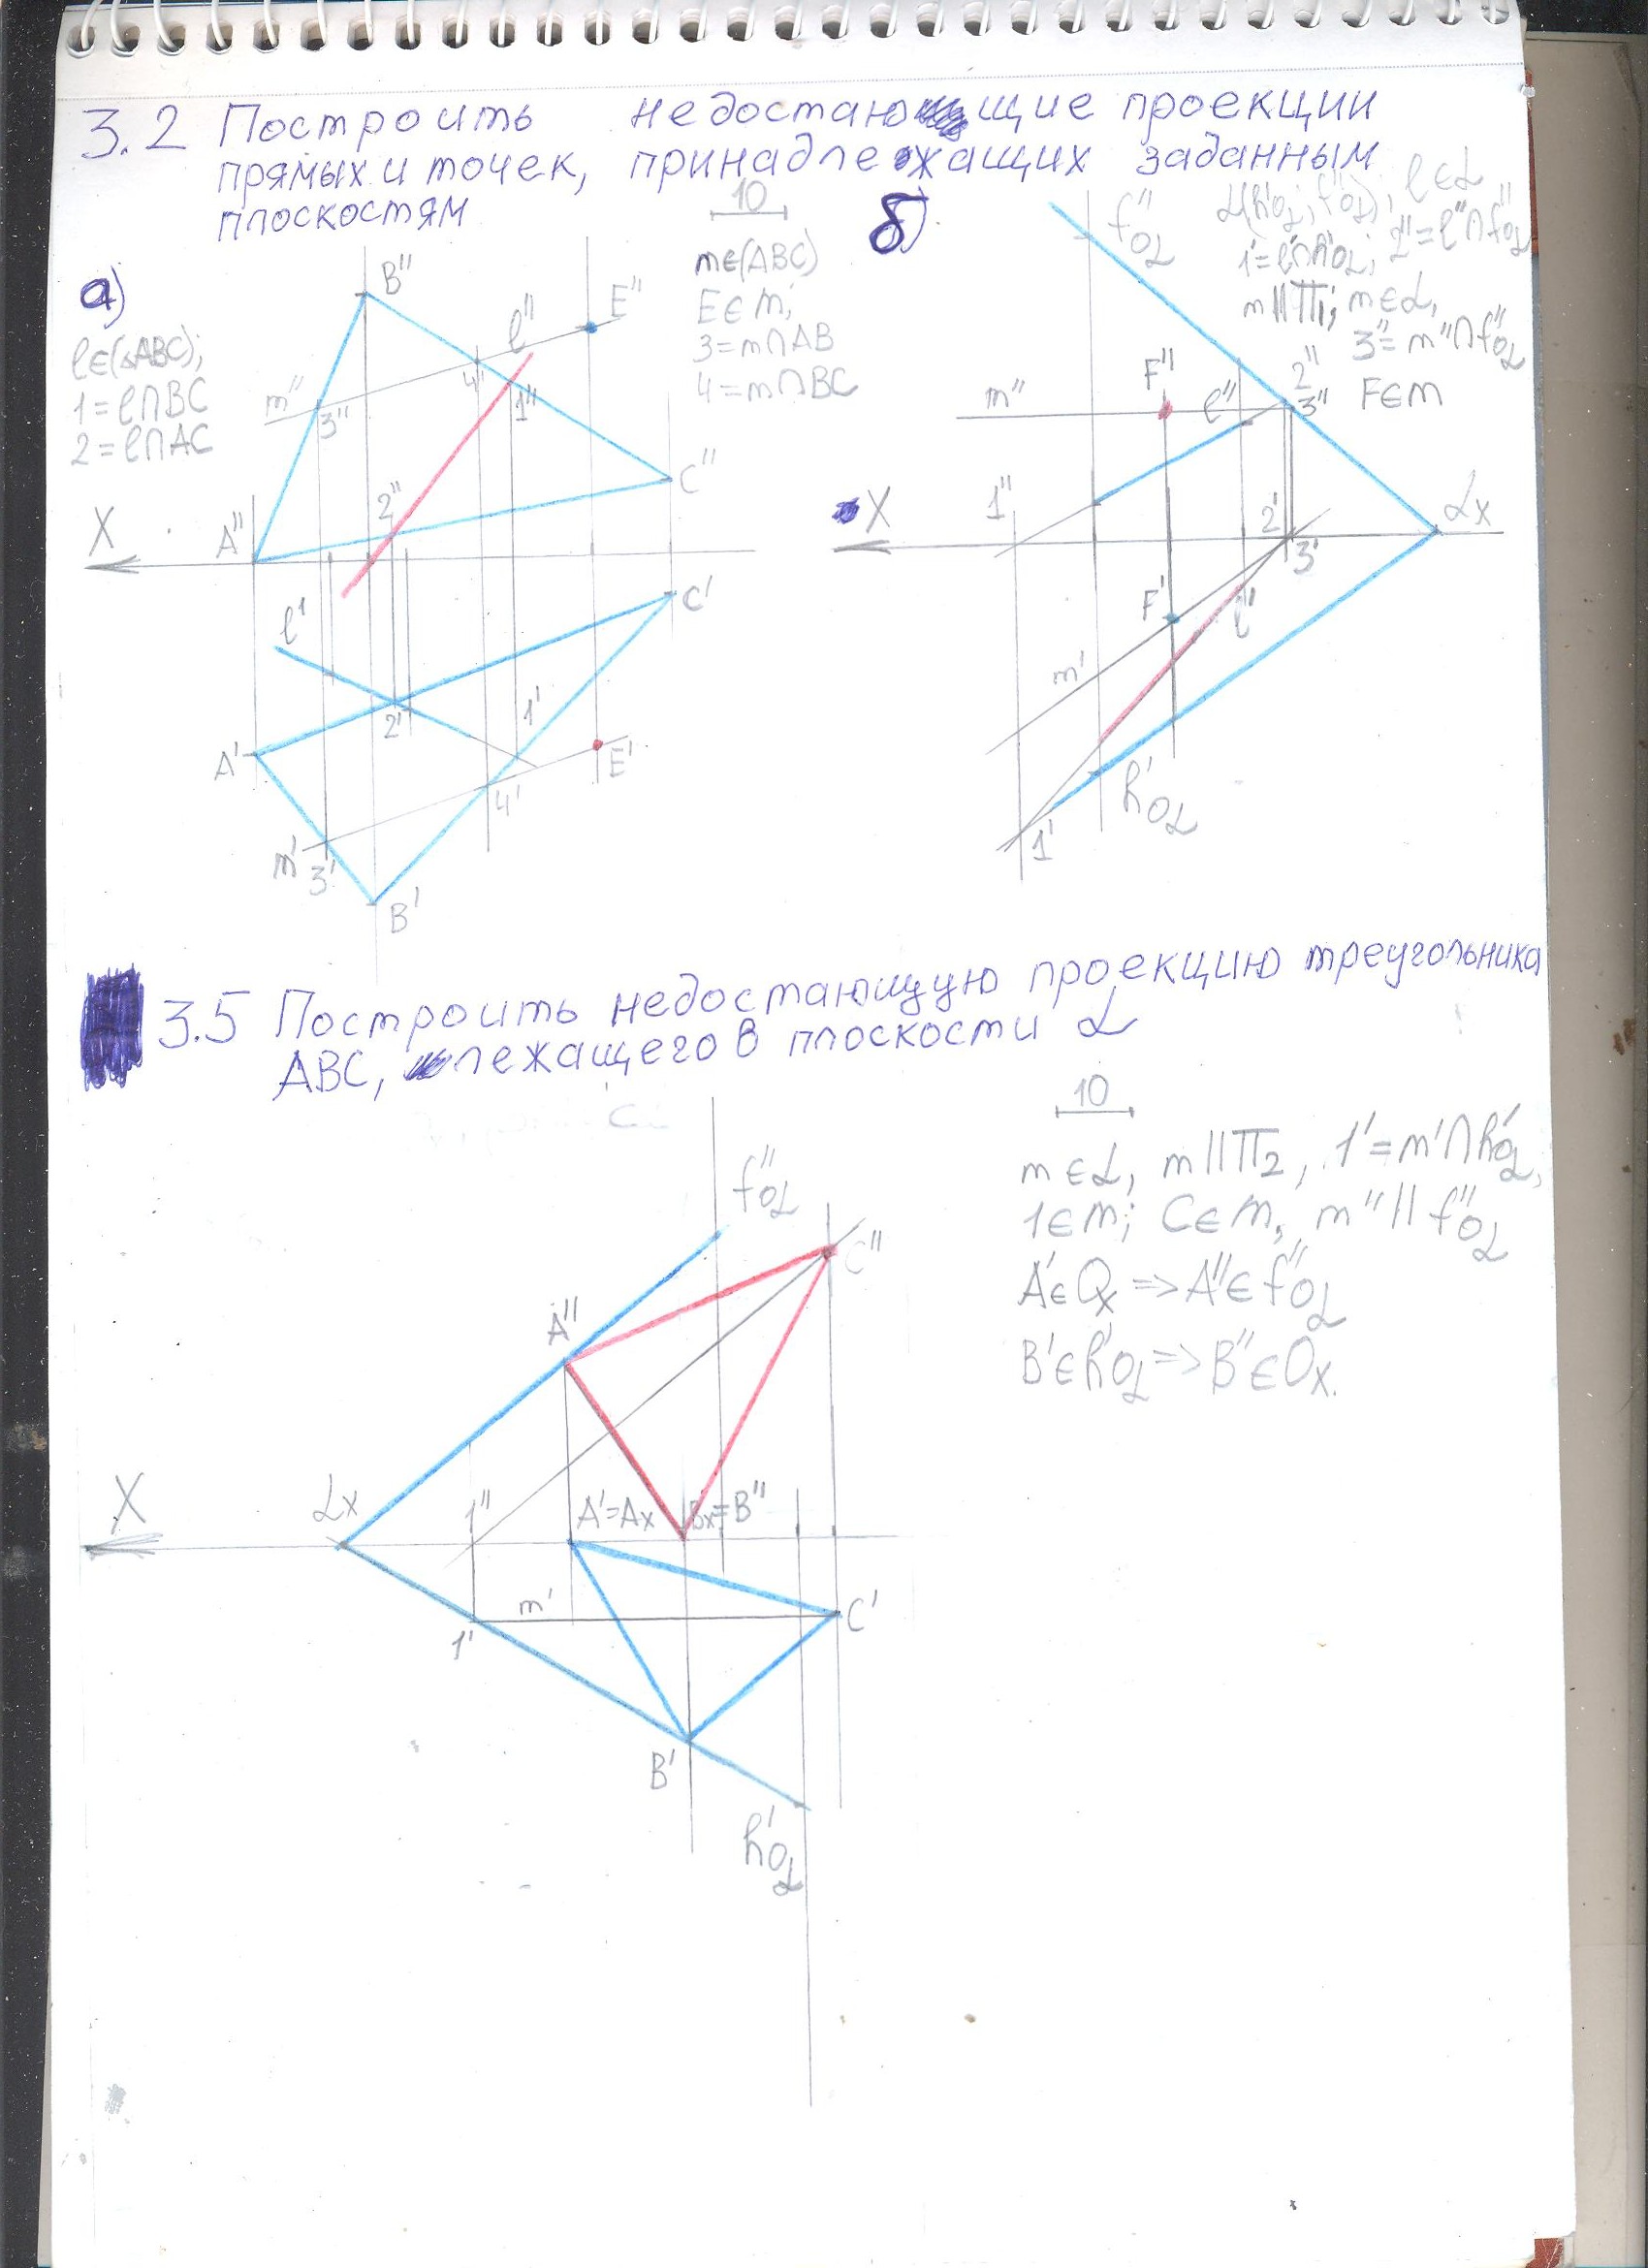 3.2 Построить недостающие проекции
прямых и точек, принадлежащих заданным
плоскостям
10
а)
l∈(△ABC);
1=l∩BC
2=l∩AC
m∈(ABC)
E∈m;
3=m∩AB
4=m∩BC
B''
E''
l''
m''
3''
4''
1''
C''
2''
X
A''
l'
C'
A'
2'
1'
E'
m'
3'
4'
B'
б)
α(h'oα; f''oα); l∈α
1'=l'∩h'oα; 2''=l''∩f''oα
m||П1; m∈α,
3''=m''∩f''oα
F∈m
f''oα
F''
m''
l''
2''
3''
1''
X
2'
3'
αx
F'
l'
m'
h'oα
1'
3.5 Построить недостающую проекцию треугольника
ABC, лежащего в плоскости α
10
m∈α, m||П2, 1'=m'∩h'oα,
1∈m; C∈m, m''||f''oα
A'∈Ox=>A''∈f''oα
B'∈h'oα=>B''∈Ox.
f''oα
C''
A''
X
αx
1''
A'=Ax
Bx=B''
m'
1'
C'
B'
h'oα